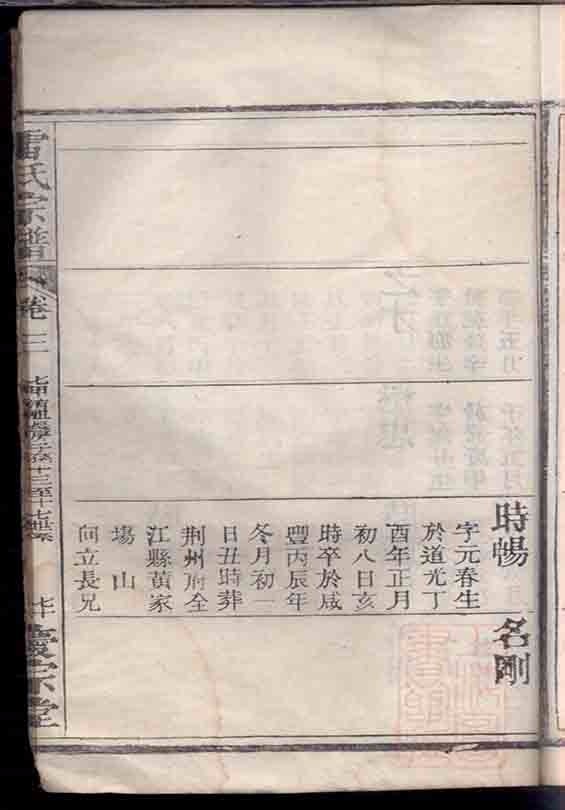 時暢
字元春生
於道光丁
酉年正月
初八日亥
時卒於咸
豐丙辰年
冬月初一
日丑時葬
荊州府全
江縣黃家
塲山
向立長兄
名剛
雷氏宗譜
卷三
愛宗堂